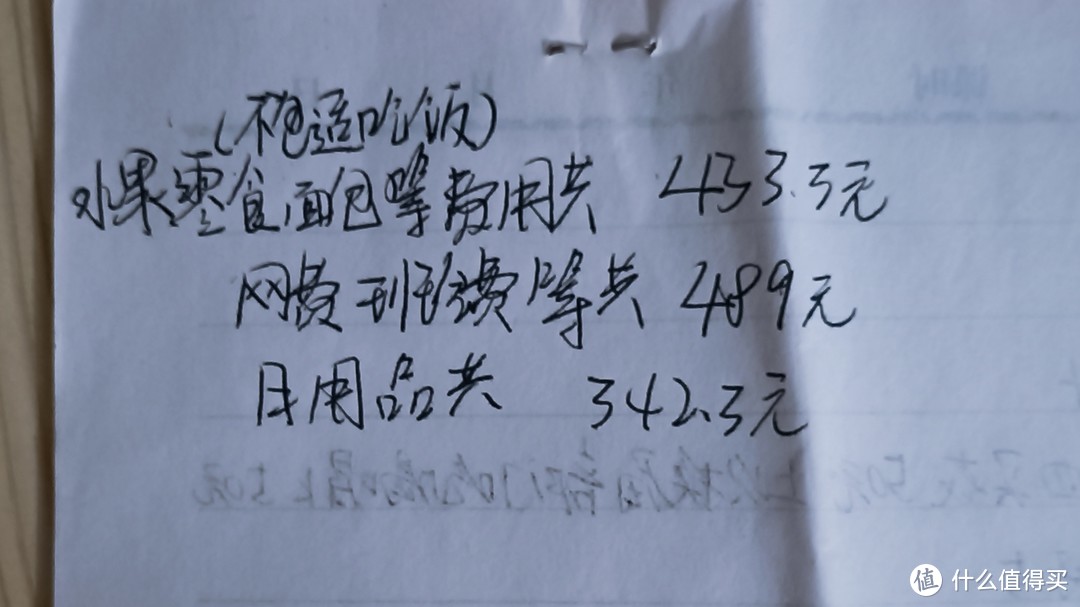 (不包适吃饭)
水果零食面包等费用共 433.3元
网费 班费等共 489元
日用品共 342.3元
值 什么值得买